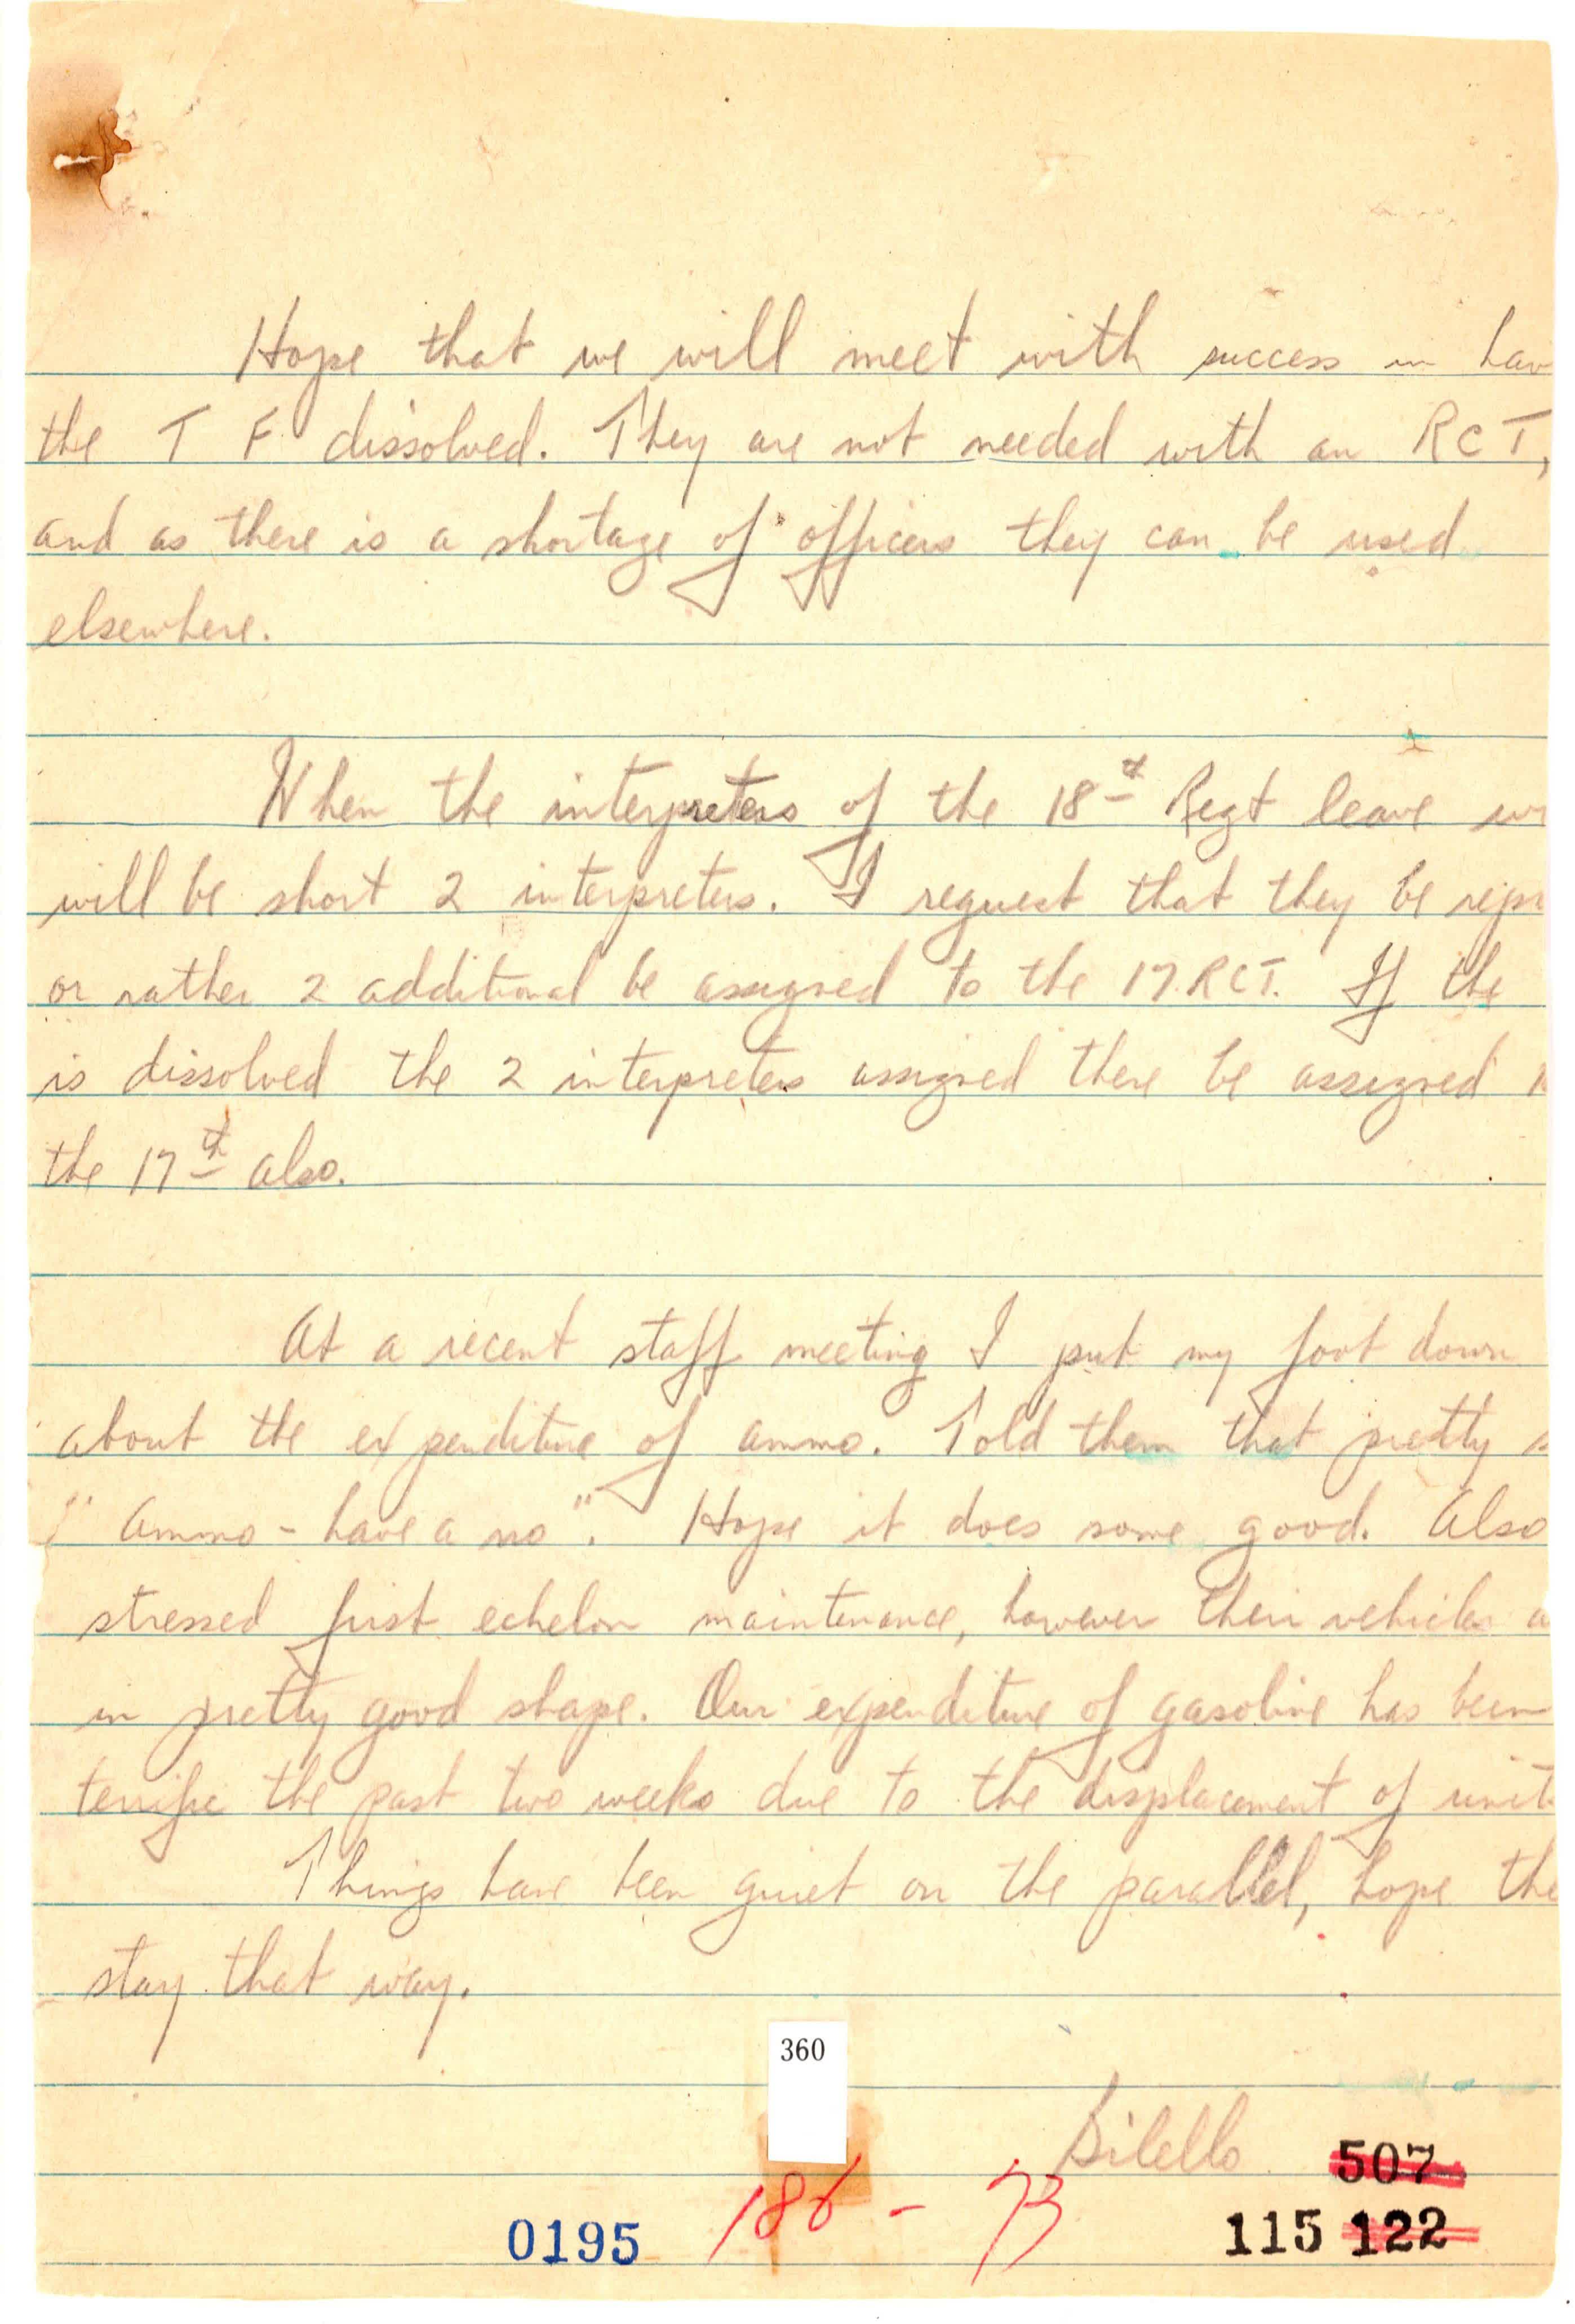 Hope that we will meet with success in hav
the T F dissolved. They are not needed with an RCT,
and as there is a shortage of officers they can be used
elsewhere.
When the interpreters of the 18th Regt leave we
will be short 2 interpreters. I request that they be
or rather 2 additional be assigned to the 17 RCT. If the
is dissolved the 2 interpreters assigned there be assigned
the 17th also.
At a recent staff meeting I put my foot down
about the expenditure of ammo. Told them that pretty s
"Ammo - have a no". Hope it does some good. Also
stressed first echelon maintenance, however their vehicles a
in pretty good shape. Our expenditure of gasoline has been
terrific the past two weeks due to the displacement of unit
Things have been quiet on the parallel, hope the
stay that way.
360
Dilello
507
0195 186 - 73 115 122